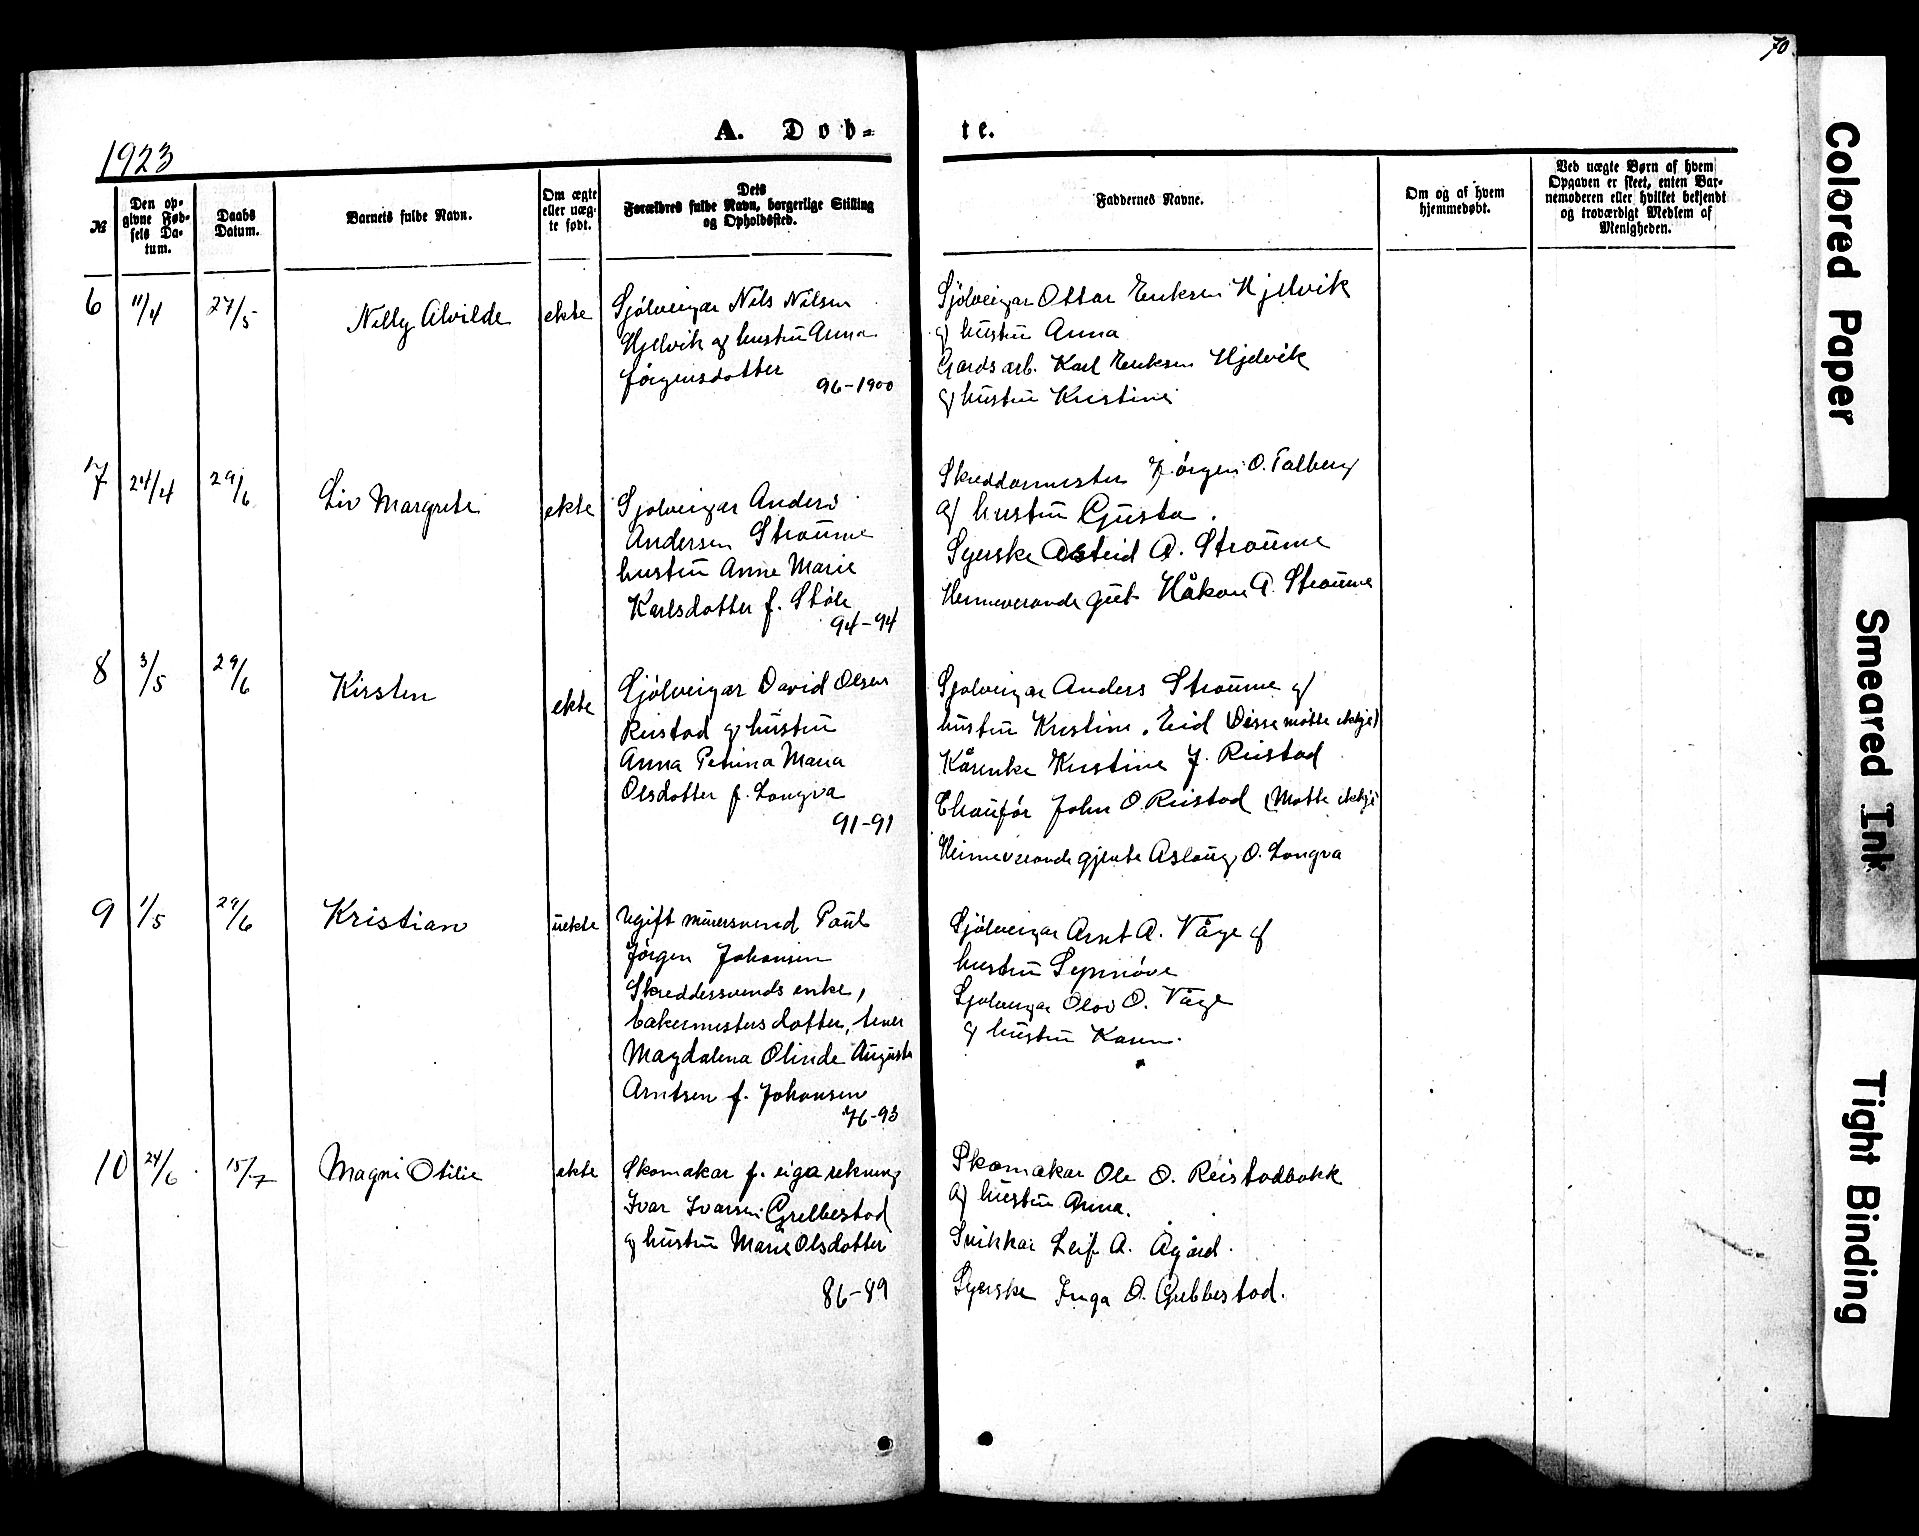 70
A. Døb-te.
1923
№
Den op-
givne Fød-
sels Da-
tum.
Daabs
Datum.
Barnets fulde Navn.
Om ægte
eller uæg-
te født.
Dets
Forældres fulde Navn, borgerlige Stilling
og Opholdssted.
Faddernes Navne.
Om og af hvem
hjemmedøbt.
Ved uægte Børn af hvem
Opgaven er skeet, enten Bar-
nemoderen eller hvilket bekjendt
og troværdigt Medlem af
Menigheden.
6
11/4
27/5
Nelly Alvilde
ekte
Sjölveigar Nils Nilsen
Hjelvik og hustru Anna
Jörgensdotter
96-1900
Sjölveigar Ottar Eriksen Hjelvik
og hustru Anna
Gardsarb. Karl Eriksen Hjelvik
og hustru Kristine
7
24/4
29/6
Liv Margrete
ekte
Sjolveigar Anders
Andersen Straume
hustru Anne Marie
Karlsdotter f. Støle
94-94
Skreddarmester Jörgen O. Talberg
og hustru Gjusta.
Syerske Astrid A. Straume
Heimeverande gut Håkon A. Straume
8
3/5
29/6
Kirsten
ekte
Sjölveigar David Olsen
Reistad og hustru
Anna Petrina Maria
Olsdotter f. Longva
91-91
Sjolveigar Anders Straume og
hustru Kristine, Eid (Disse møtte ikkje)
Kårenke Kristine J. Reistad
Chauför John O. Reistad (Møtte ikkje)
Heimeverande gjente Aslaug O. Longva
9
1/5
29/6
Kristian
uekte
Ugift murersvend Paul
Jörgen Johansen
Skreddersvends enke,
bakermesters dotter, tener
Magdalena Olinde Augusta
Arntsen f. Johansen
76-93
Sjölveigar Arnt A. Våge og
hustru Synnöve
Sjolveigar Olav O. Våge
og hustru Karen.
10
24/6
15/7
Magni Otilie
ekte
Skomakar f. eiga rekning
Ivar Ivarsen Grebbestad
og hustru Marie Olsdotter
86-89
Skomakar Ole O. Reistadbakk
og hustru Anna.
Snikkar Leif A. Ågård.
Syerske Inga O. Grebbestad.
Colored Paper
Smeared Ink
Tight Binding